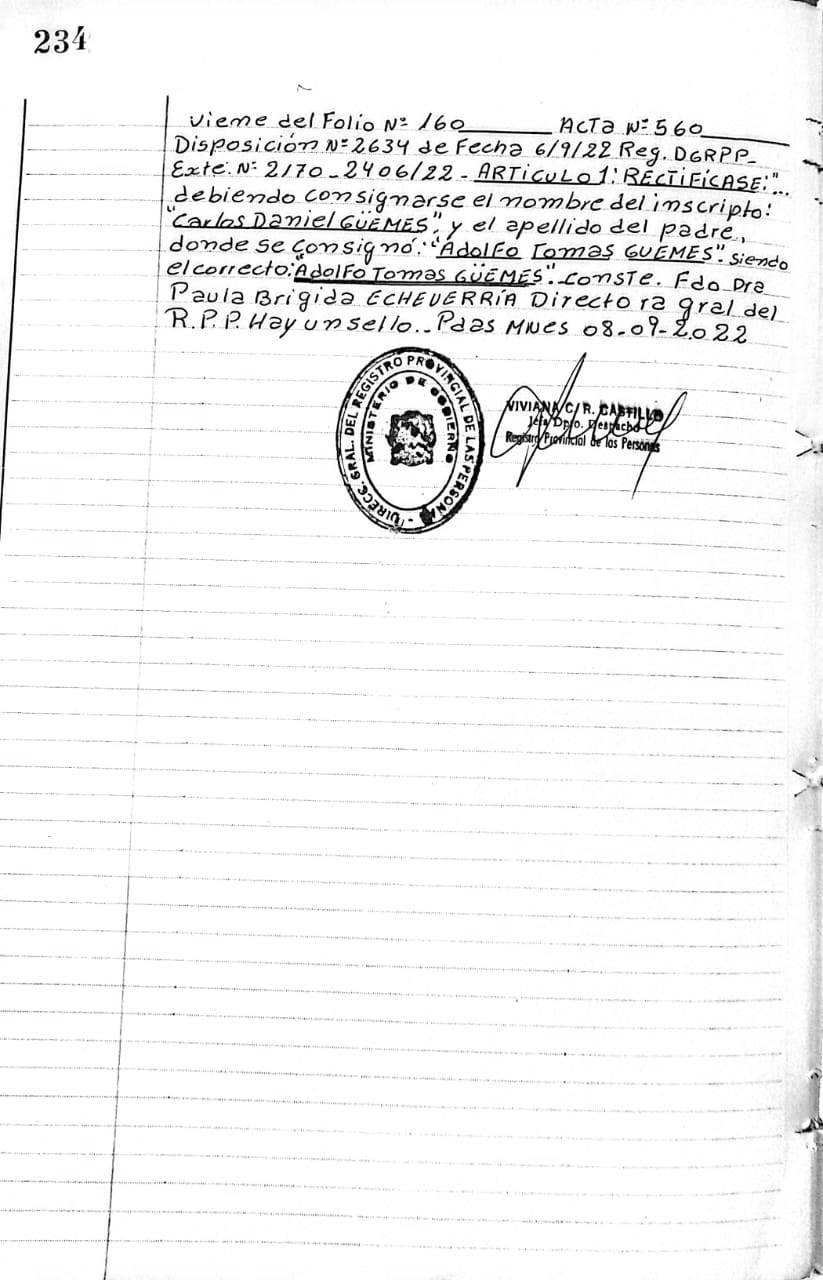 234
Viene del Folio Nº 160 ACTA Nº 560
Disposición Nº 2634 de Fecha 6/9/22 Reg. DGRPP_
Exte. Nº 2170_2406/22_ ARTICULO 1: RECTIFÍCASE: "...
debiendo consignarse el nombre del inscripto:
"Carlos Daniel GÜEMES". y el apellido del padre,
donde se consignó: "Adolfo Tomas GUEMES". siendo
el correcto: "Adolfo Tomas GÜEMES". Conste. Fdo Dra
Paula Brigida ECHEVERRÍA Directora gral del
R.P.P. Hay un sello._ Pdas Mnes 08-09-2022
DIRECC. GRAL. DEL REGISTRO PROVINCIAL DE LAS PERSONAS -
MINISTERIO DE GOBIERNO
VIVIANA C. R. CASTILLO
Jefa Dpto. Despacho
Registro Provincial de las Personas